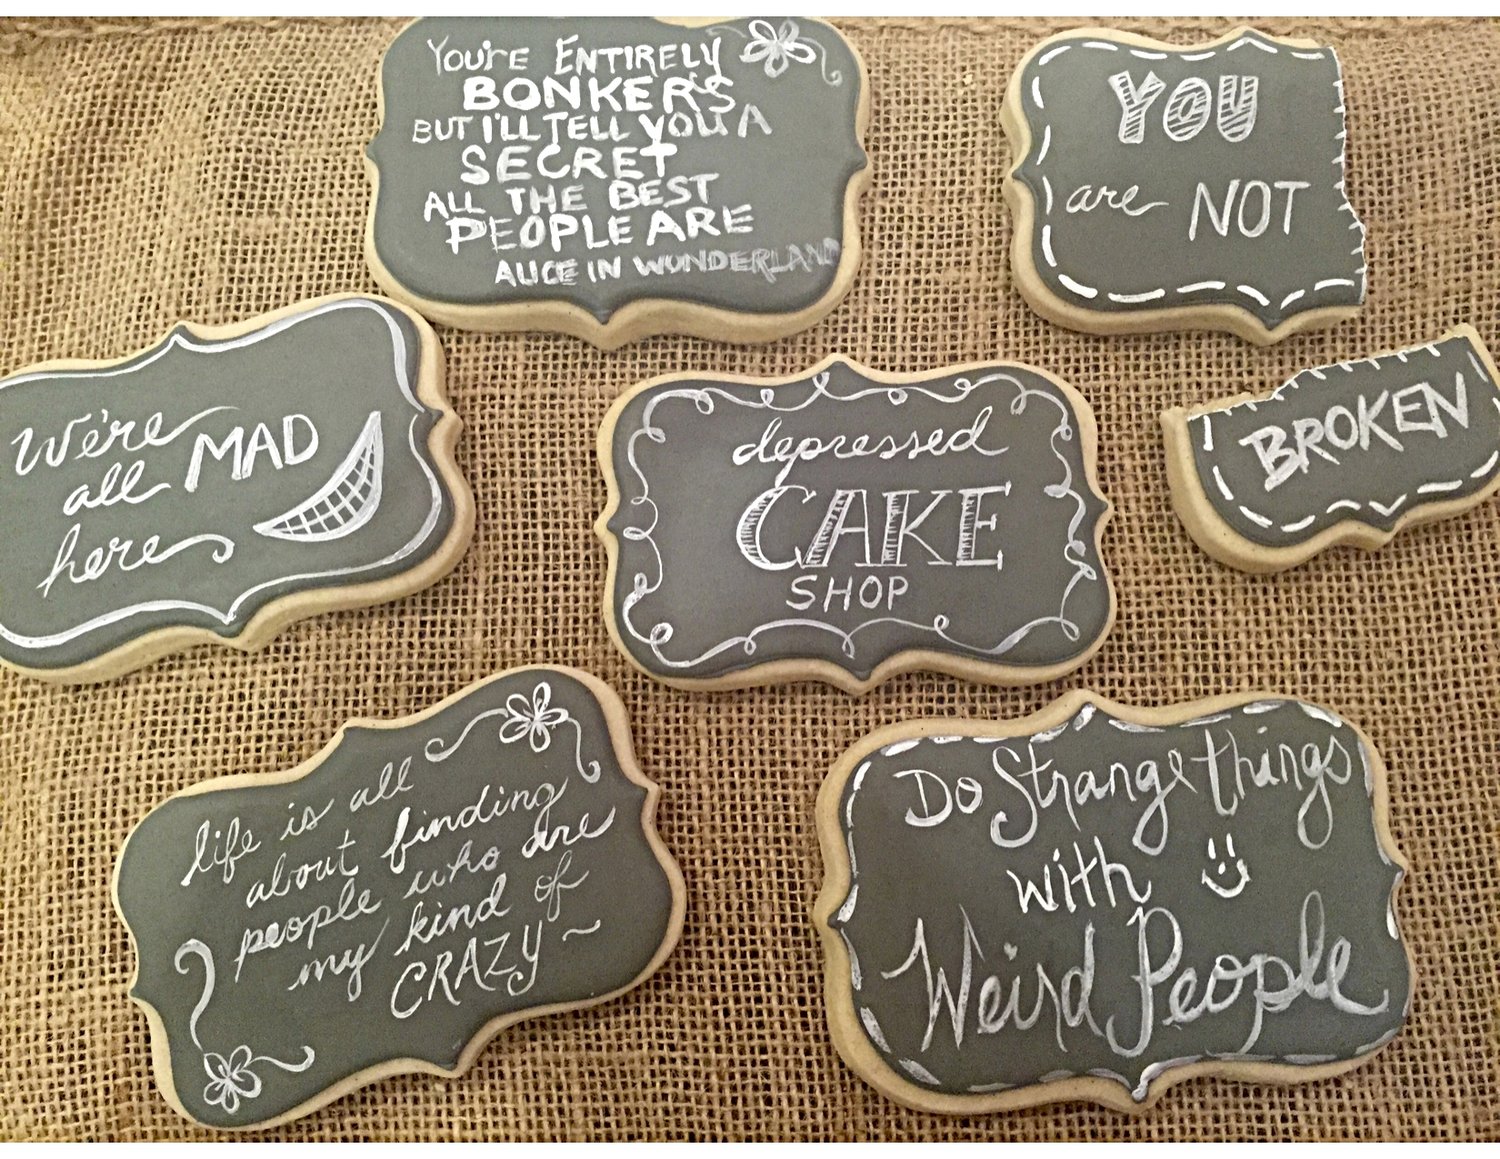 YOU'RE ENTIRELY
BONKERS
BUT I'LL TELL YOU A
SECRET
ALL THE BEST
PEOPLE ARE
ALICE IN WONDERLAND
YOU
are NOT
BROKEN
We're
all MAD
here
depressed
CAKE
SHOP
life is all
about finding
people who are
my kind of
CRAZY ~
Do Strange things
with
Weird People